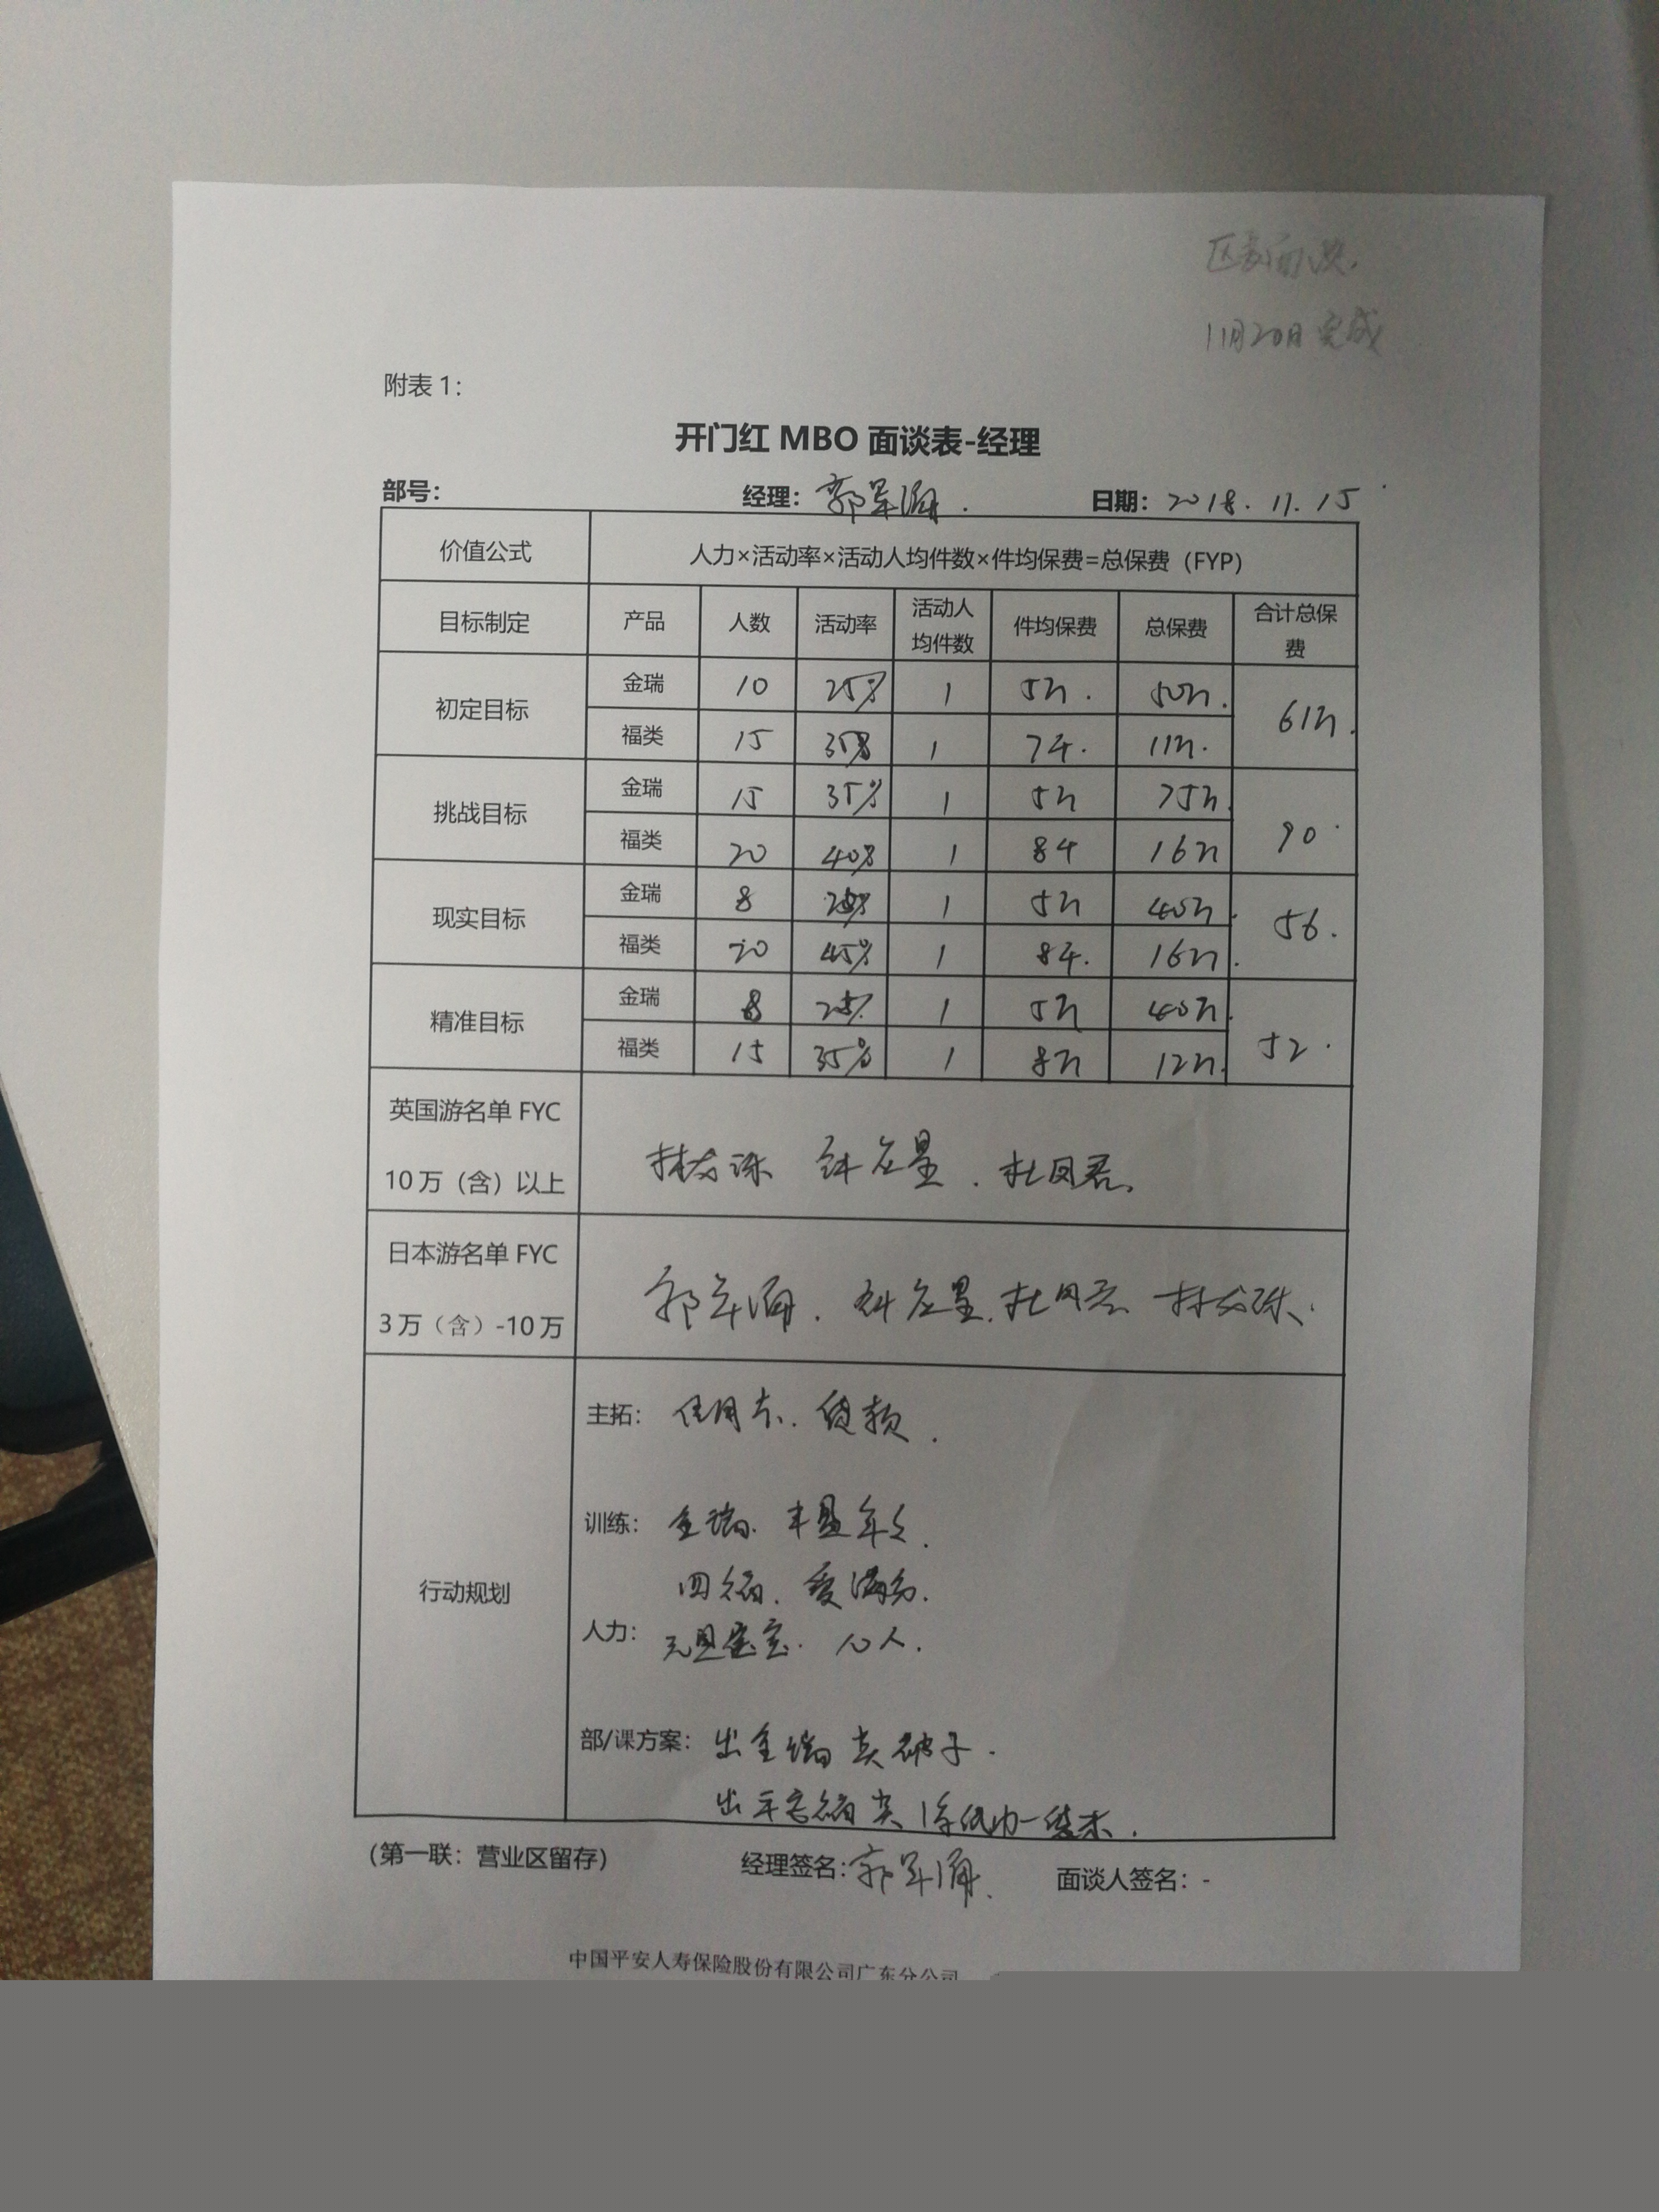 11月20日完成
附表 1：
开门红 MBO 面谈表-经理
部号： 经理：郭军涌. 日期：2018.11.15
价值公式 人力×活动率×活动人均件数×件均保费=总保费（FYP）
目标制定 产品 人数 活动率 活动人均件数 件均保费 总保费 合计总保费
初定目标 金瑞 10 25% 1 5万. 50万. 61万.
福类 15 35% 1 7千. 11万.
挑战目标 金瑞 15 35% 1 5万 75万. 90
福类 20 40% 1 8千 16万
现实目标 金瑞 8 1 5万 40万. 56.
福类 20 45% 1 8千. 16万.
精准目标 金瑞 8 25% 1 5万 40万. 52.
福类 15 35% 1 8万 12万.
英国游名单 FYC
10 万（含）以上 杜凤君
日本游名单 FYC
3 万（含）-10 万 郭军涌.
行动规划
主拓： 信用卡. 贷款.
训练： 金瑞.
福. 爱满分.
人力： 10人.
部/课方案： 出金瑞
出平安福
（第一联：营业区留存） 经理签名：郭军涌. 面谈人签名：-
中国平安人寿保险股份有限公司广东分公司